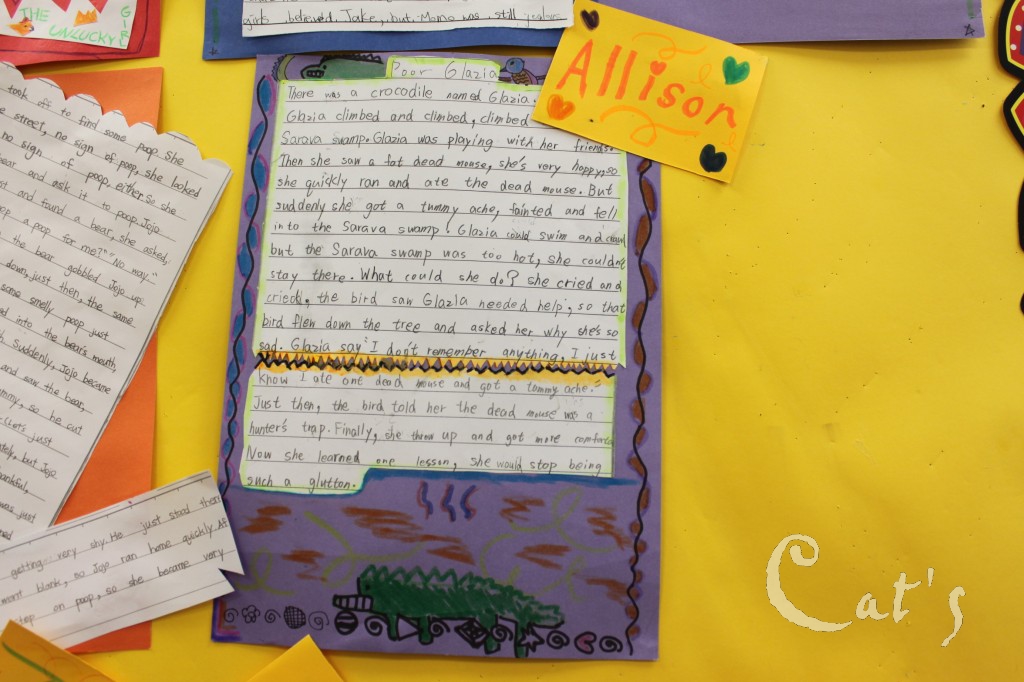 THE
UNLUCKY
GIRL
girls believed Jake, but Momo was still
took off to find some poop. She
street, no sign of poop, she looked
no sign of poop either. So she
bear and ask it to poop. Jojo
and found a bear, she asked,
a poop for me?" "No way."
the bear gobbled Jojo up
down, just then, the same
same smelly poop just
into the bear's mouth,
Suddenly, Jojo became
and saw the bear,
so he cut
just
but Jojo
was just
getting very shy. He just stood then
want blank, so Jojo ran home quickly. At
on poop, so she became very
Poor Glazia
There was a crocodile named Glazia.
Glazia climbed and climbed, climbed
Sarava swamp. Glazia was playing with her friends.
Then she saw a fat dead mouse, she's very happy, so
she quickly ran and ate the dead mouse. But
suddenly she got a tummy ache, fainted and fell
into the Sarava swamp. Glazia could swim and
but the Sarava swamp was too hot, she couldn't
stay there. What could she do? she cried and
cried, the bird saw Glazia needed help, so that
bird flew down the tree and asked her why she's so
sad. Glazia say: I don't remember anything, I just
know I ate one dead mouse and got a tommy ache."
Just then, the bird told her the dead mouse was a
hunter's trap. Finally, she threw up and got more
Now she learned one lesson, she would stop being
such a glutton.
Allison
Cat's